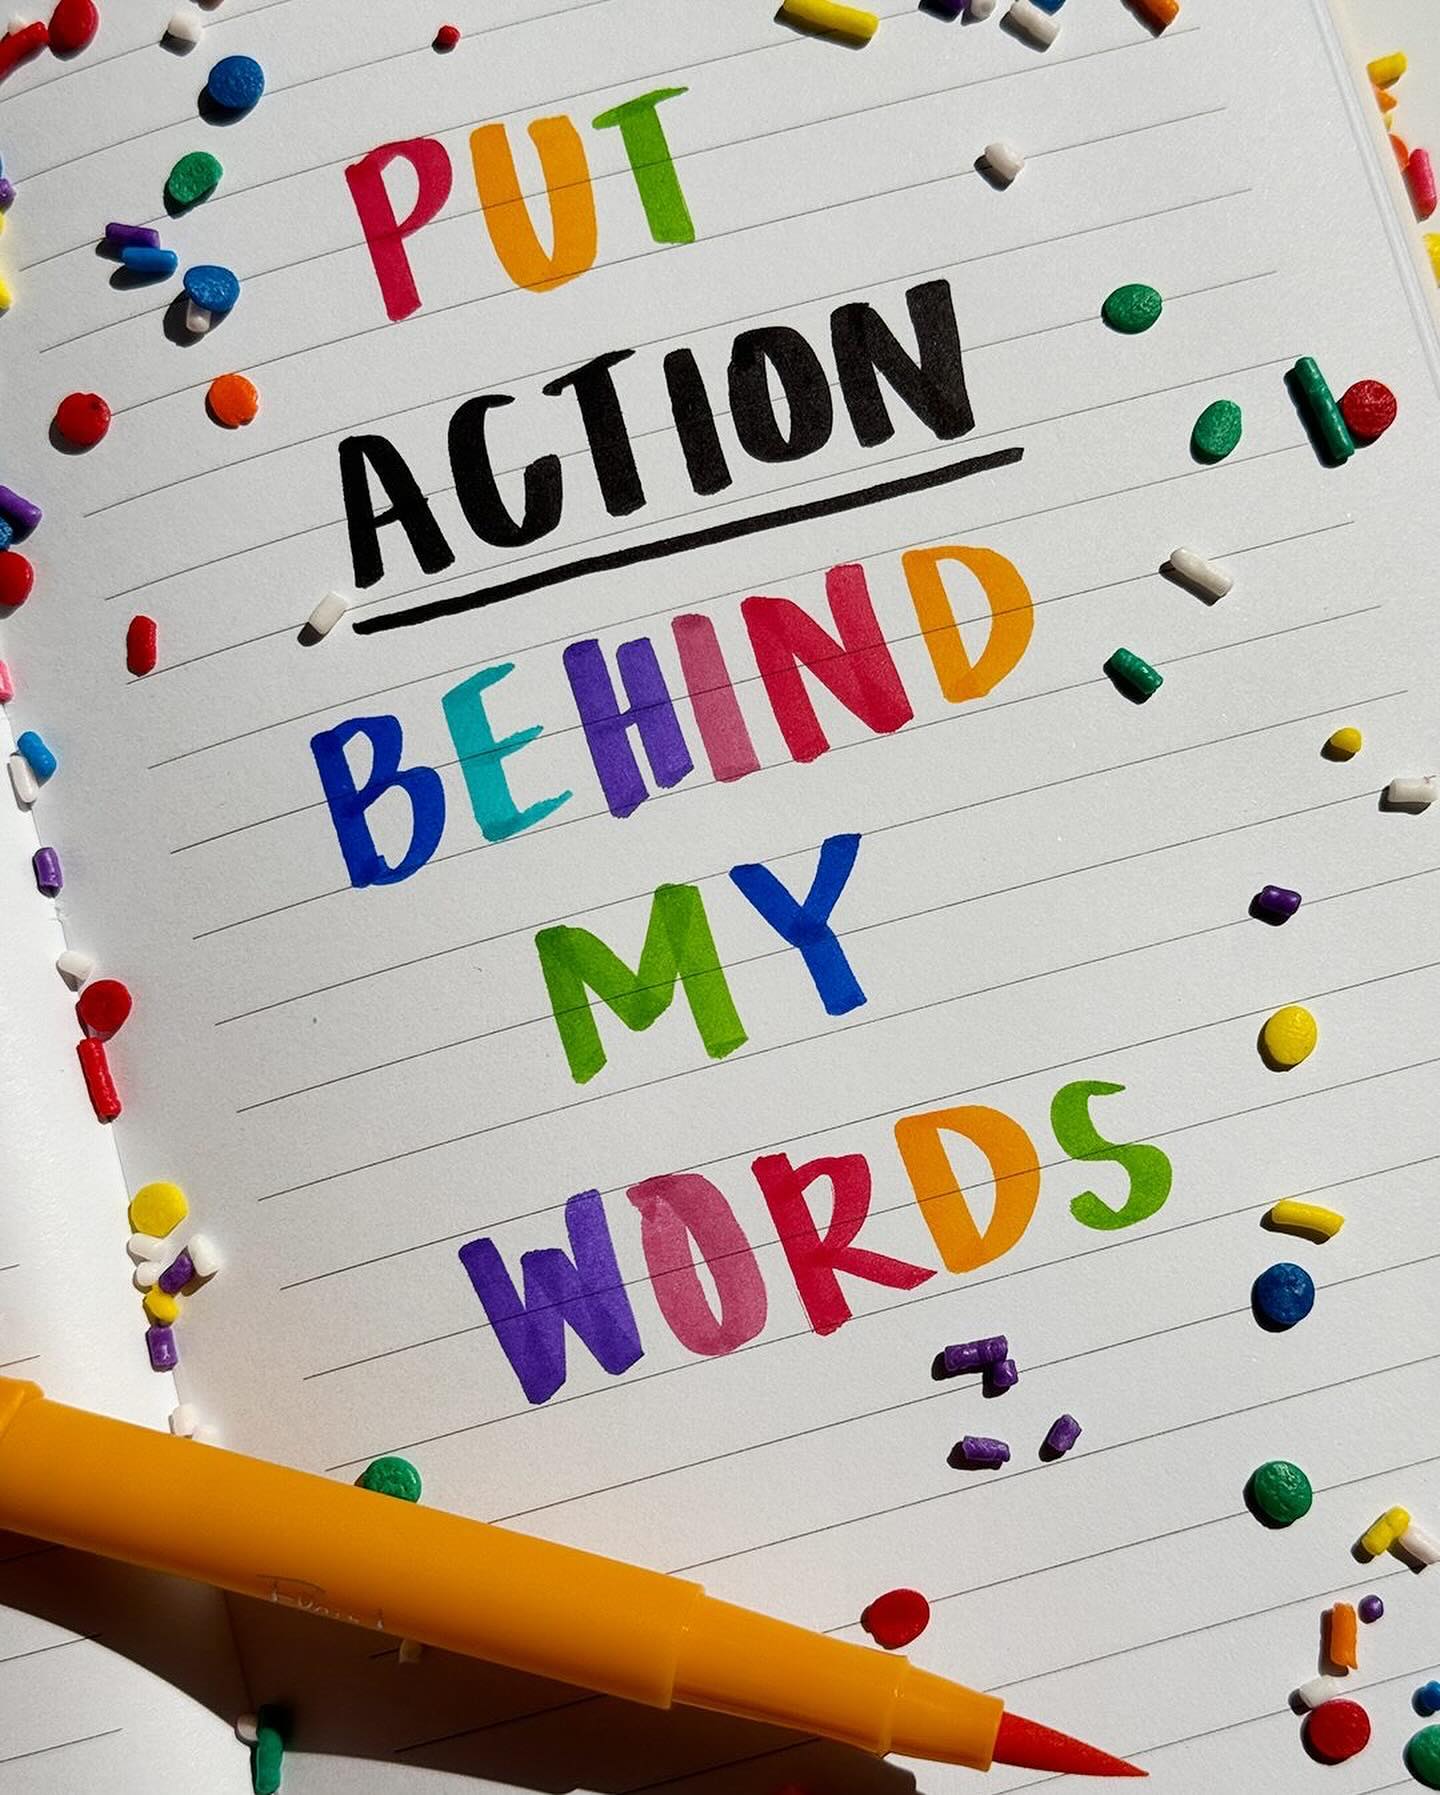 PUT
ACTION
BEHIND
MY
WORDS